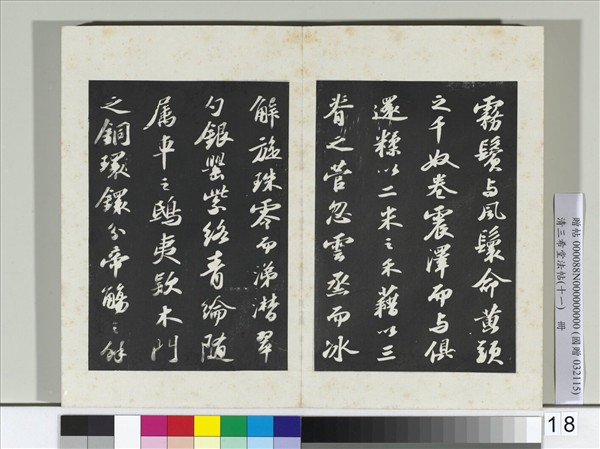 霧鬢与風鬟命黃頭
之千奴卷震澤而与俱
還糅以二米之禾藉以三
脊之菅忽雲烝而冰
解旋珠零而涕潸翠
勺銀罌紫絡青綸隨
属車之鴟夷欵木門
之銅環鐶分帝觴之餘
贈帖 000088N000000000 (國贈 032115)
清三希堂法帖(十一) 冊
18